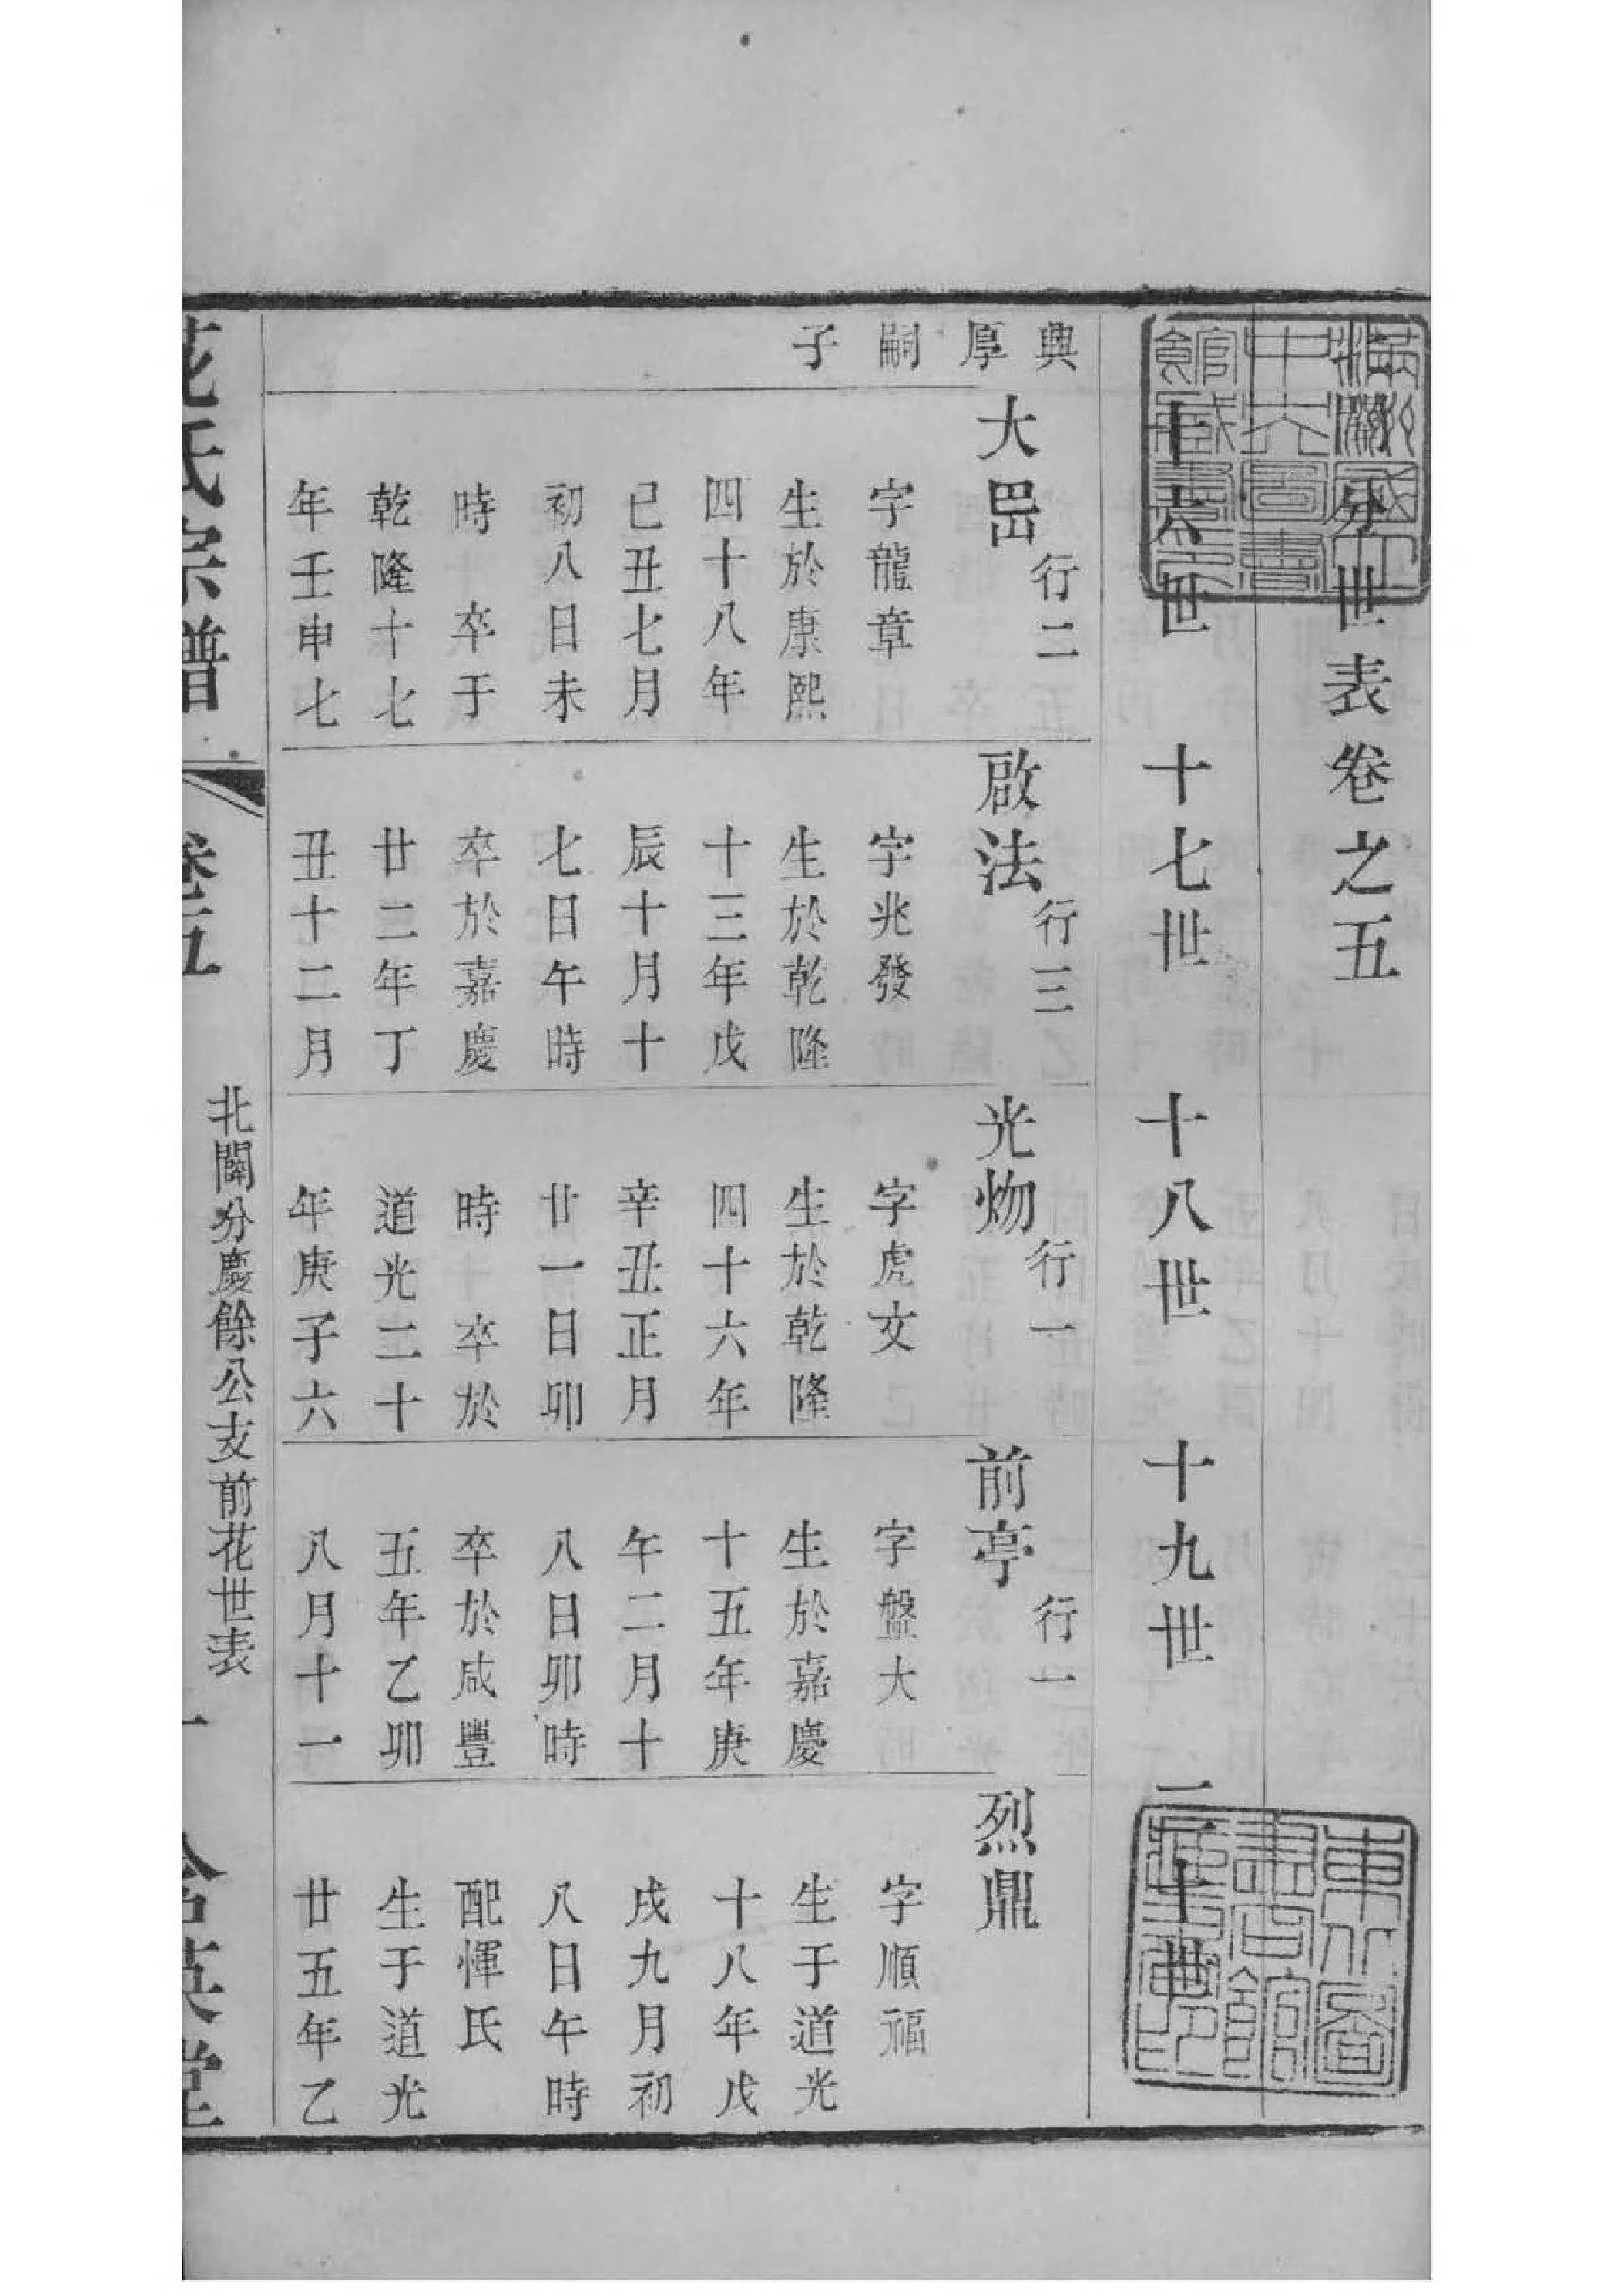 分世表卷之五
十六世
十七世
十八世
十九世
二十世
典厚嗣子
大㠯 行二
字龍章
生於康熙
四十八年
已丑七月
初八日未
時 卒于
乾隆十七
年壬申七
啟法 行三
字兆發
生於乾隆
十三年戊
辰十月十
七日午時
卒於嘉慶
廿二年丁
丑十二月
光㷔 行一
字虎文
生於乾隆
四十六年
辛丑正月
廿一日卯
時 卒於
道光二十
年庚子六
前亭 行一
字盤大
生於嘉慶
十五年庚
午二月十
八日卯時
卒於咸豐
五年乙卯
八月十一
烈鼎
字順福
生于道光
十八年戊
戌九月初
八日午時
配惲氏
生于道光
廿五年乙
花氏宗譜
卷五
北闈分慶餘公支前花世表
一